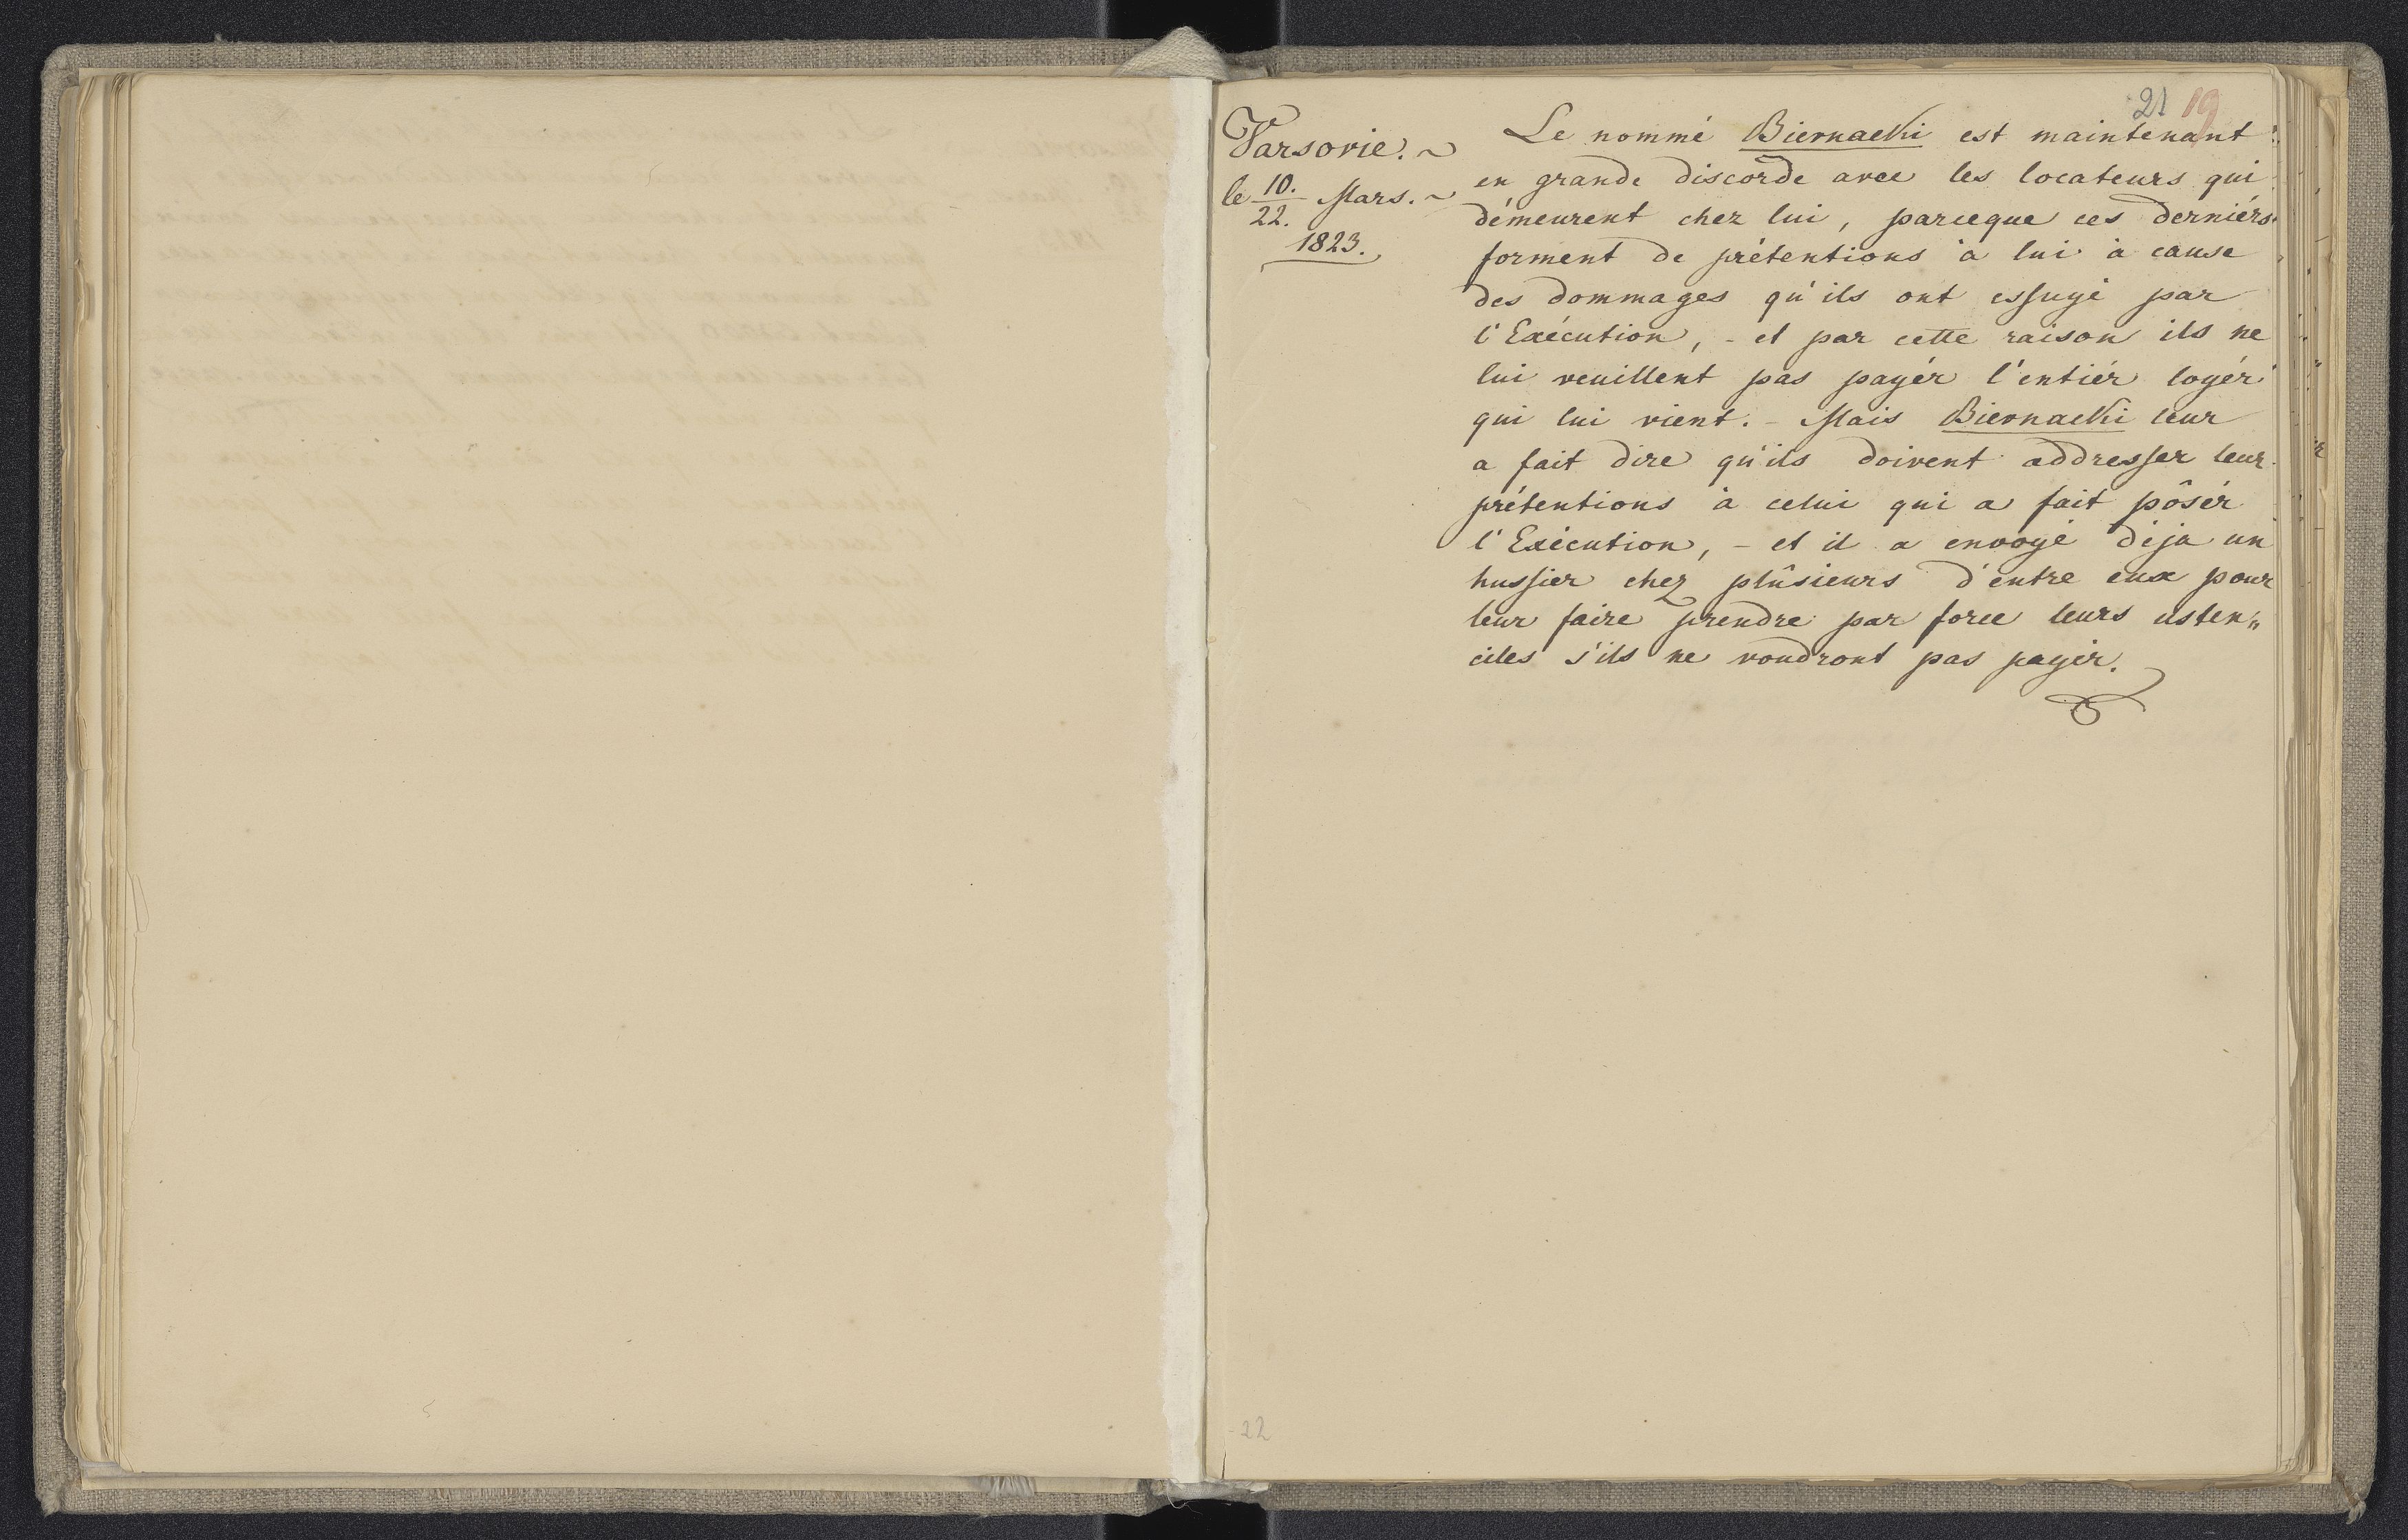 21 19
Varsovie. ~
le 10./22. Mars. ~
1823.
Le nommé Biernacki est maintenant
en grande discorde avec les locateurs qui
démeurent chez lui, parceque ces derniérs
forment de prétentions à lui à cause
des dommages qu'ils ont essuyé par
l'Exécution, - et par cette raison ils ne
lui veuillent pas payér l'entiér loyér
qui lui vient. - Mais Biernacki leur
a fait dire qu'ils doivent addresser leur
prétentions à celui qui a fait pôsér
l'Exécution, - et il a envoyé déja un
hussier chez plûsieurs d'entre eux pour
leur faire prendre par force leurs usten„
ciles s'ils ne voudront pas payér.
22